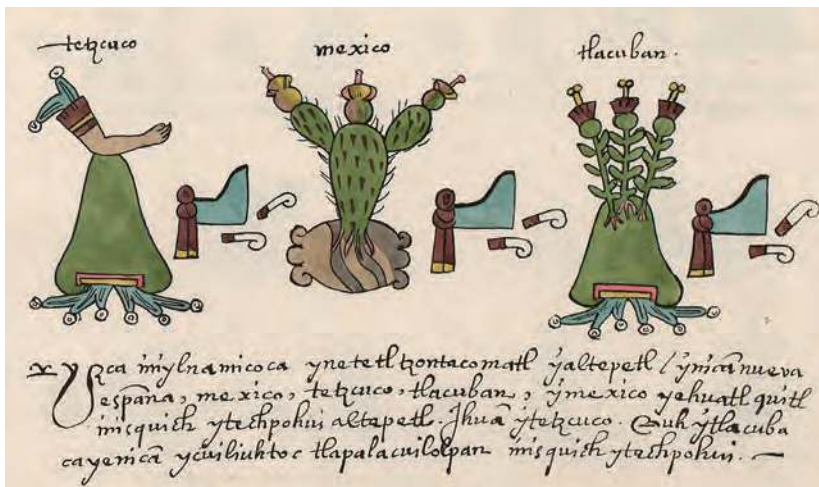 tetzcuco mexico tlacuban.
yzca inylnamicoca ynetetl tzontecomatl yaltepetl / ynicā nueva
españa, mexico, tetzcuco, tlacuban, ymexico yehuatl quitl
inisquich ytechpohui altepetl. Jhuā ytetzcuco. Auh ytlacuba
ca yenicā ycuiliuhtoc tlapalacuilolpan inisquich ytechpohui. —